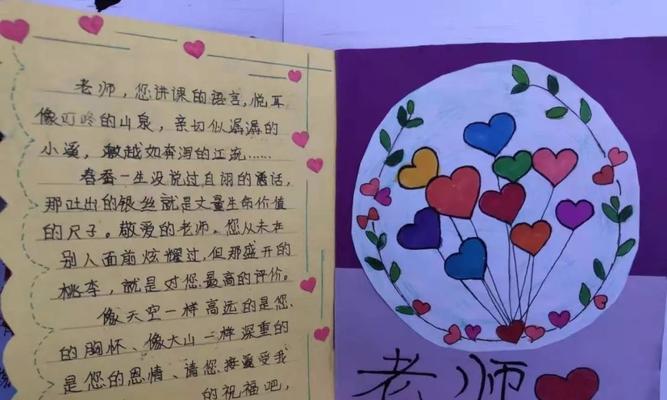 老师，您讲课的语言，悦耳
像叮咚的山泉，亲切似潺潺的
小溪，激越如奔泻的江流……
春蚕一生没说过自诩的话，
那吐出的银丝就是丈量生命价值
的尺子。敬爱的老师。您从未在
别人面前炫耀过，但那盛开的
桃李，就是对您最高的评价。
像天空一样高远的是您
的胸怀、像大山一样深重的
是您的恩情、请您接受我
的祝福吧，
老师